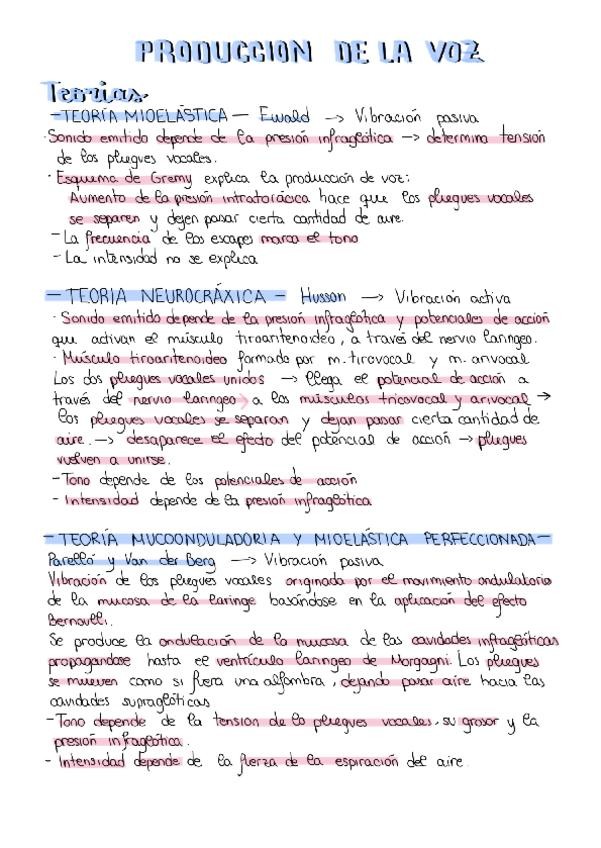 PRODUCCION DE LA VOZ
Teorias
-TEORÍA MIOELÁSTICA - Ewald -> Vibración pasiva
·Sonido emitido depende de la presión infraglótica -> determina tensión
de los pliegues vocales.
· Esquema de Gremy explica la producción de voz:
Aumento de la presión intratorácica hace que los pliegues vocales
se separen y dejen pasar cierta cantidad de aire.
- La frecuencia de los escapes marca el tono
- La intensidad no se explica
- TEORIA NEUROCRÁXICA - Husson -> Vibración activa
· Sonido emitido depende de la presión infraglótica y potenciales de acción
que activan el músculo tiroaritenoideo, a través del nervio laríngeo.
· Músculo tiroaritenoideo formado por m. tirovocal y m. arivocal
Los dos pliegues vocales unidos -> llega el potencial de acción a
través del nervio laríngeo -> a los músculos tricovocal y arivocal ->
los pliegues vocales se separan y dejan pasar cierta cantidad de
aire. -> desaparece el efecto del potencial de acción -> pliegues
vuelven a unirse.
- Tono depende de los potenciales de acción
- Intensidad depende de la presión infraglótica
- TEORÍA MUCOONDULADORIA Y MIOELÁSTICA PERFECCIONADA-
Parelló y Van der Berg -> Vibración pasiva
Vibración de los pliegues vocales originada por el movimiento ondulatorio
de la mucosa de la laringe basándose en la aplicación del efecto
Bernoulli.
Se produce la ondulación de la mucosa de las cavidades infraglóticas
propagandose hasta el ventrículo laríngeo de Morgagni. Los pliegues
se mueven como si fuera una alfombra, dejando pasar aire hacia las
cavidades supraglóticas
-Tono depende de la tension de lo pliegues vocales, su grosor y la
presión infraglótica.
- Intensidad depende de la fuerza de la espiración del aire.